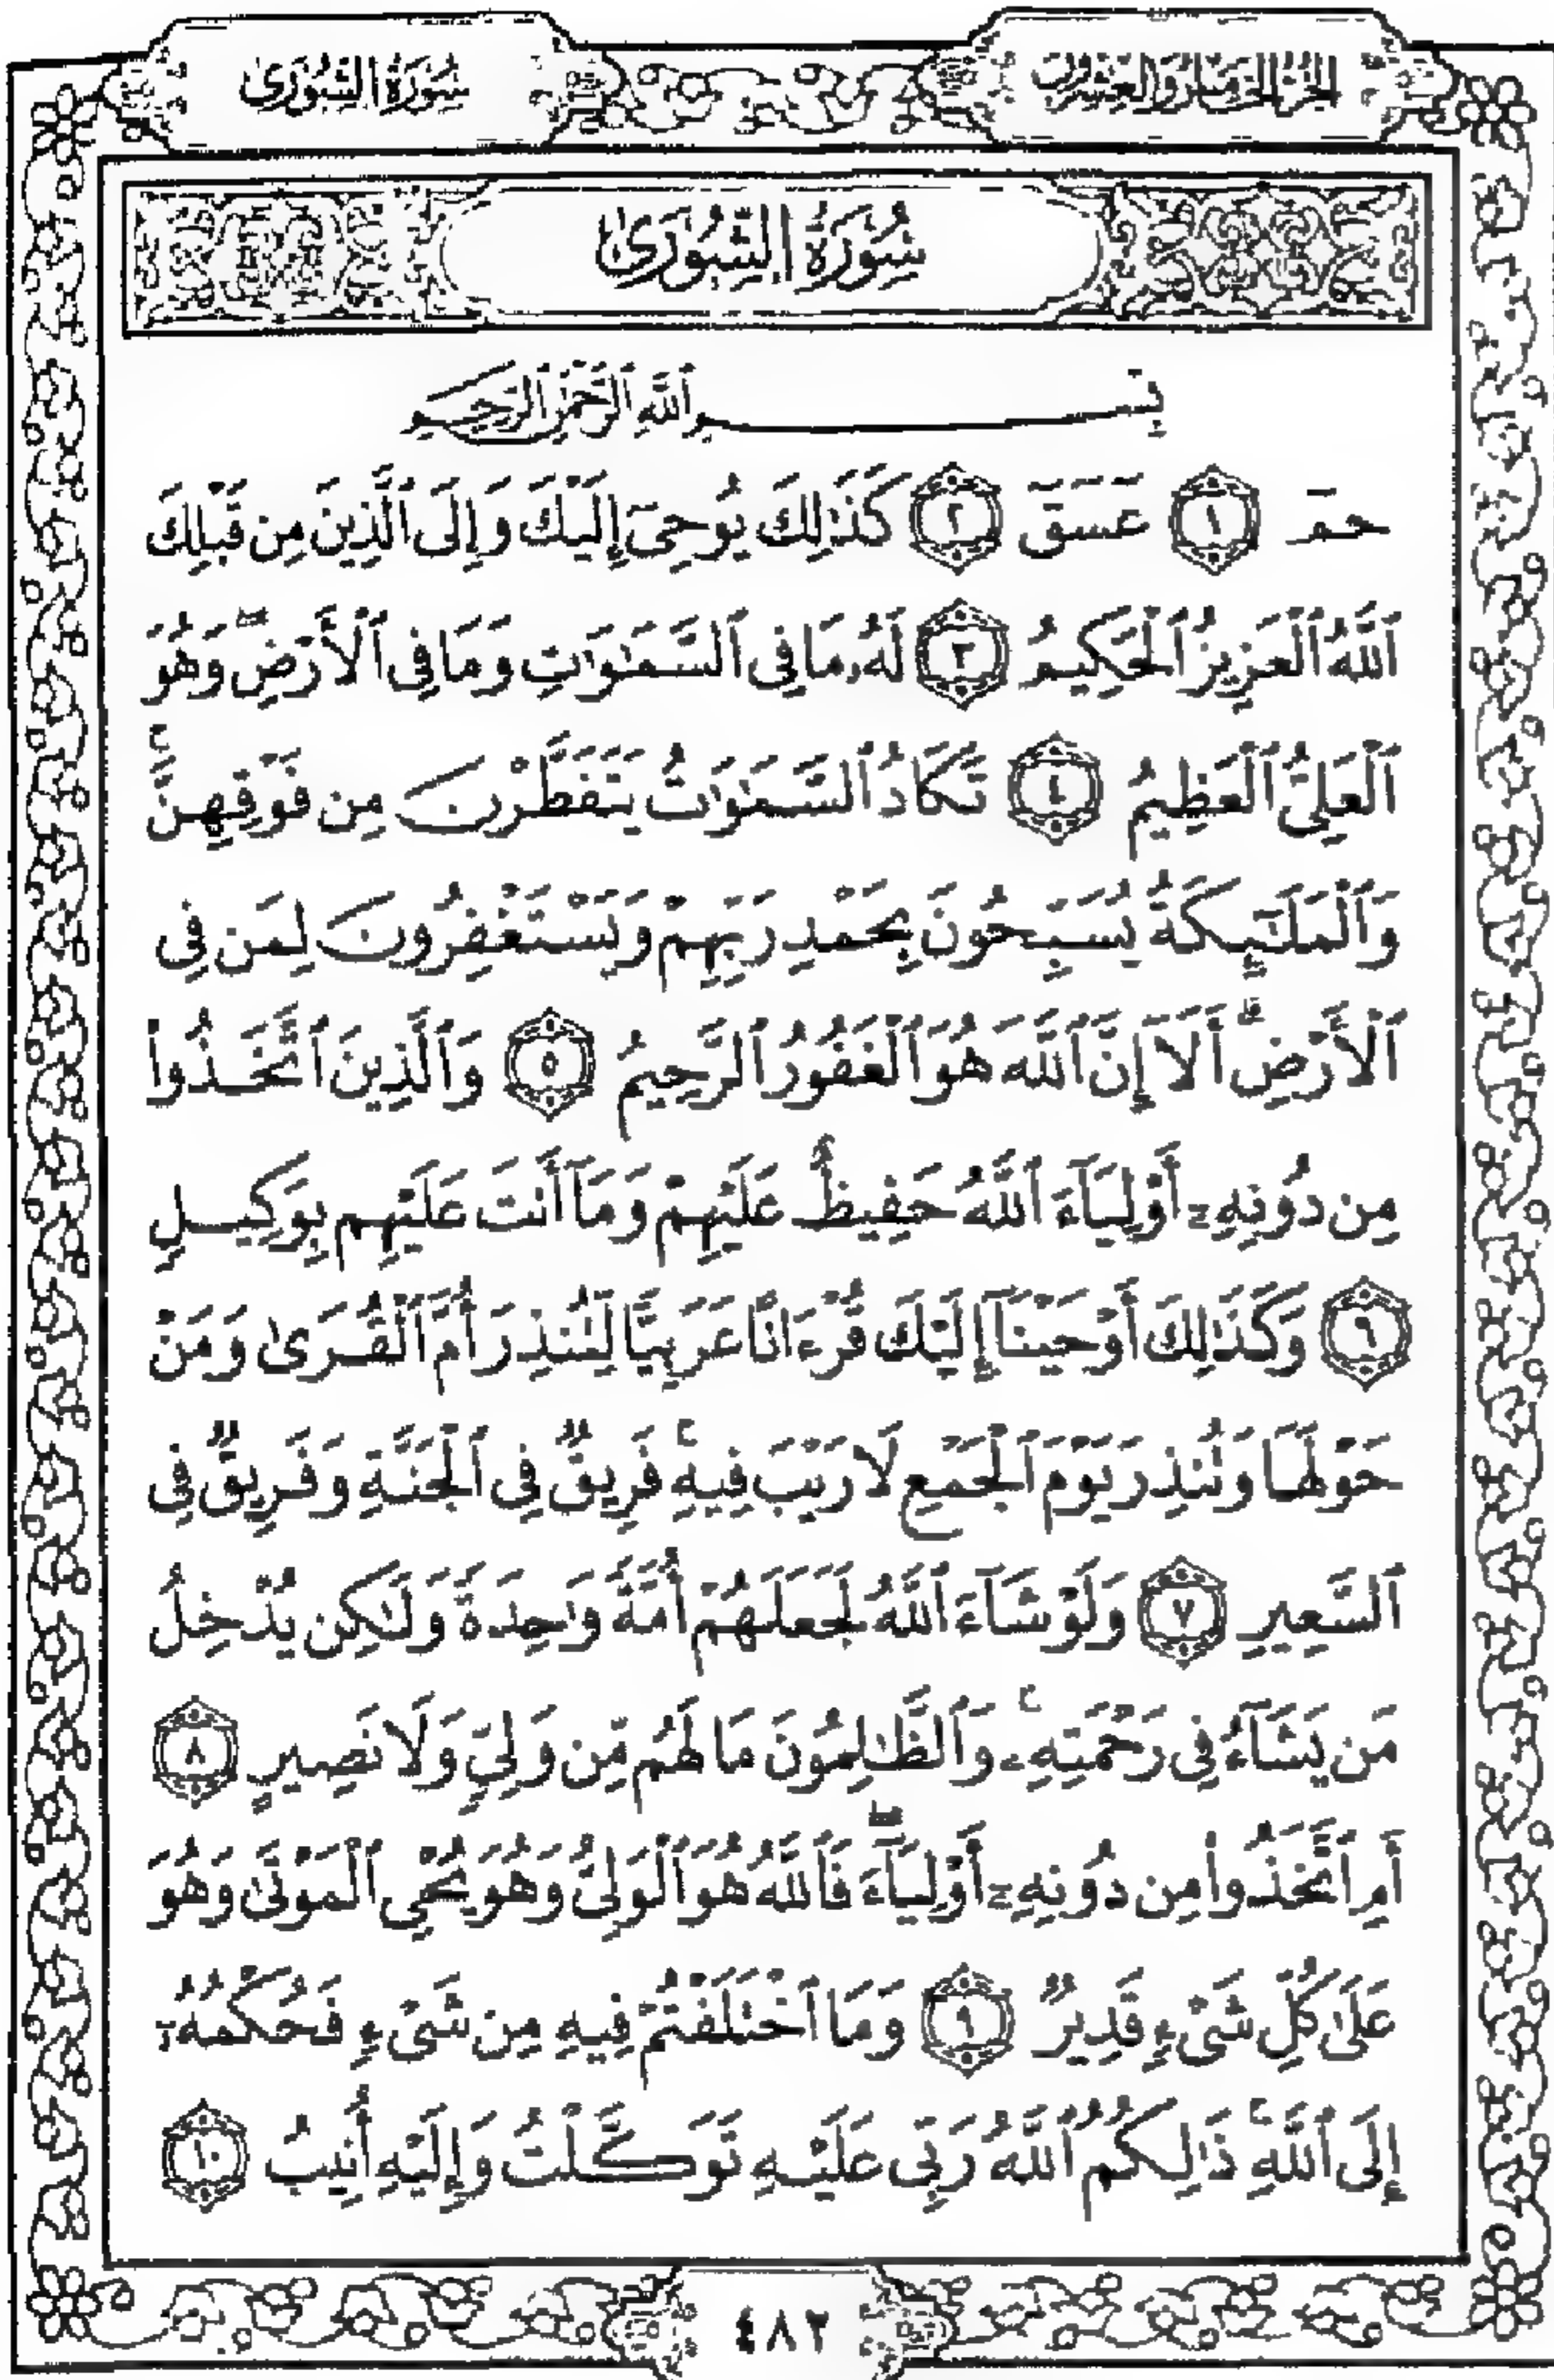 الجزء الخامس والعشرون
سورة الشورى
سُورَةُ الشُّورَىٰ
بِسْمِ ٱللَّهِ ٱلرَّحْمَٰنِ ٱلرَّحِيمِ
حمٓ ١ عٓسٓقٓ ٢ كَذَٰلِكَ يُوحِىٓ إِلَيْكَ وَإِلَى ٱلَّذِينَ مِن قَبْلِكَ
ٱللَّهُ ٱلْعَزِيزُ ٱلْحَكِيمُ ٣ لَهُۥ مَا فِى ٱلسَّمَٰوَٰتِ وَمَا فِى ٱلْأَرْضِ ۖ وَهُوَ
ٱلْعَلِىُّ ٱلْعَظِيمُ ٤ تَكَادُ ٱلسَّمَٰوَٰتُ يَتَفَطَّرْنَ مِن فَوْقِهِنَّ ۚ
وَٱلْمَلَٰٓئِكَةُ يُسَبِّحُونَ بِحَمْدِ رَبِّهِمْ وَيَسْتَغْفِرُونَ لِمَن فِى
ٱلْأَرْضِ ۗ أَلَآ إِنَّ ٱللَّهَ هُوَ ٱلْغَفُورُ ٱلرَّحِيمُ ٥ وَٱلَّذِينَ ٱتَّخَذُوا۟
مِن دُونِهِۦٓ أَوْلِيَآءَ ٱللَّهُ حَفِيظٌ عَلَيْهِمْ وَمَآ أَنتَ عَلَيْهِم بِوَكِيلٍ
٦ وَكَذَٰلِكَ أَوْحَيْنَآ إِلَيْكَ قُرْءَانًا عَرَبِيًّا لِّتُنذِرَ أُمَّ ٱلْقُرَىٰ وَمَنْ
حَوْلَهَا وَتُنذِرَ يَوْمَ ٱلْجَمْعِ لَا رَيْبَ فِيهِ ۚ فَرِيقٌ فِى ٱلْجَنَّةِ وَفَرِيقٌ فِى
ٱلسَّعِيرِ ٧ وَلَوْ شَآءَ ٱللَّهُ لَجَعَلَهُمْ أُمَّةً وَٰحِدَةً وَلَٰكِن يُدْخِلُ
مَن يَشَآءُ فِى رَحْمَتِهِۦ ۚ وَٱلظَّٰلِمُونَ مَا لَهُم مِّن وَلِىٍّ وَلَا نَصِيرٍ ٨
أَمِ ٱتَّخَذُوا۟ مِن دُونِهِۦٓ أَوْلِيَآءَ ۖ فَٱللَّهُ هُوَ ٱلْوَلِىُّ وَهُوَ يُحْىِ ٱلْمَوْتَىٰ وَهُوَ
عَلَىٰ كُلِّ شَىْءٍ قَدِيرٌ ٩ وَمَا ٱخْتَلَفْتُمْ فِيهِ مِن شَىْءٍ فَحُكْمُهُۥٓ
إِلَى ٱللَّهِ ۚ ذَٰلِكُمُ ٱللَّهُ رَبِّى عَلَيْهِ تَوَكَّلْتُ وَإِلَيْهِ أُنِيبُ ١٠
٤٨٣